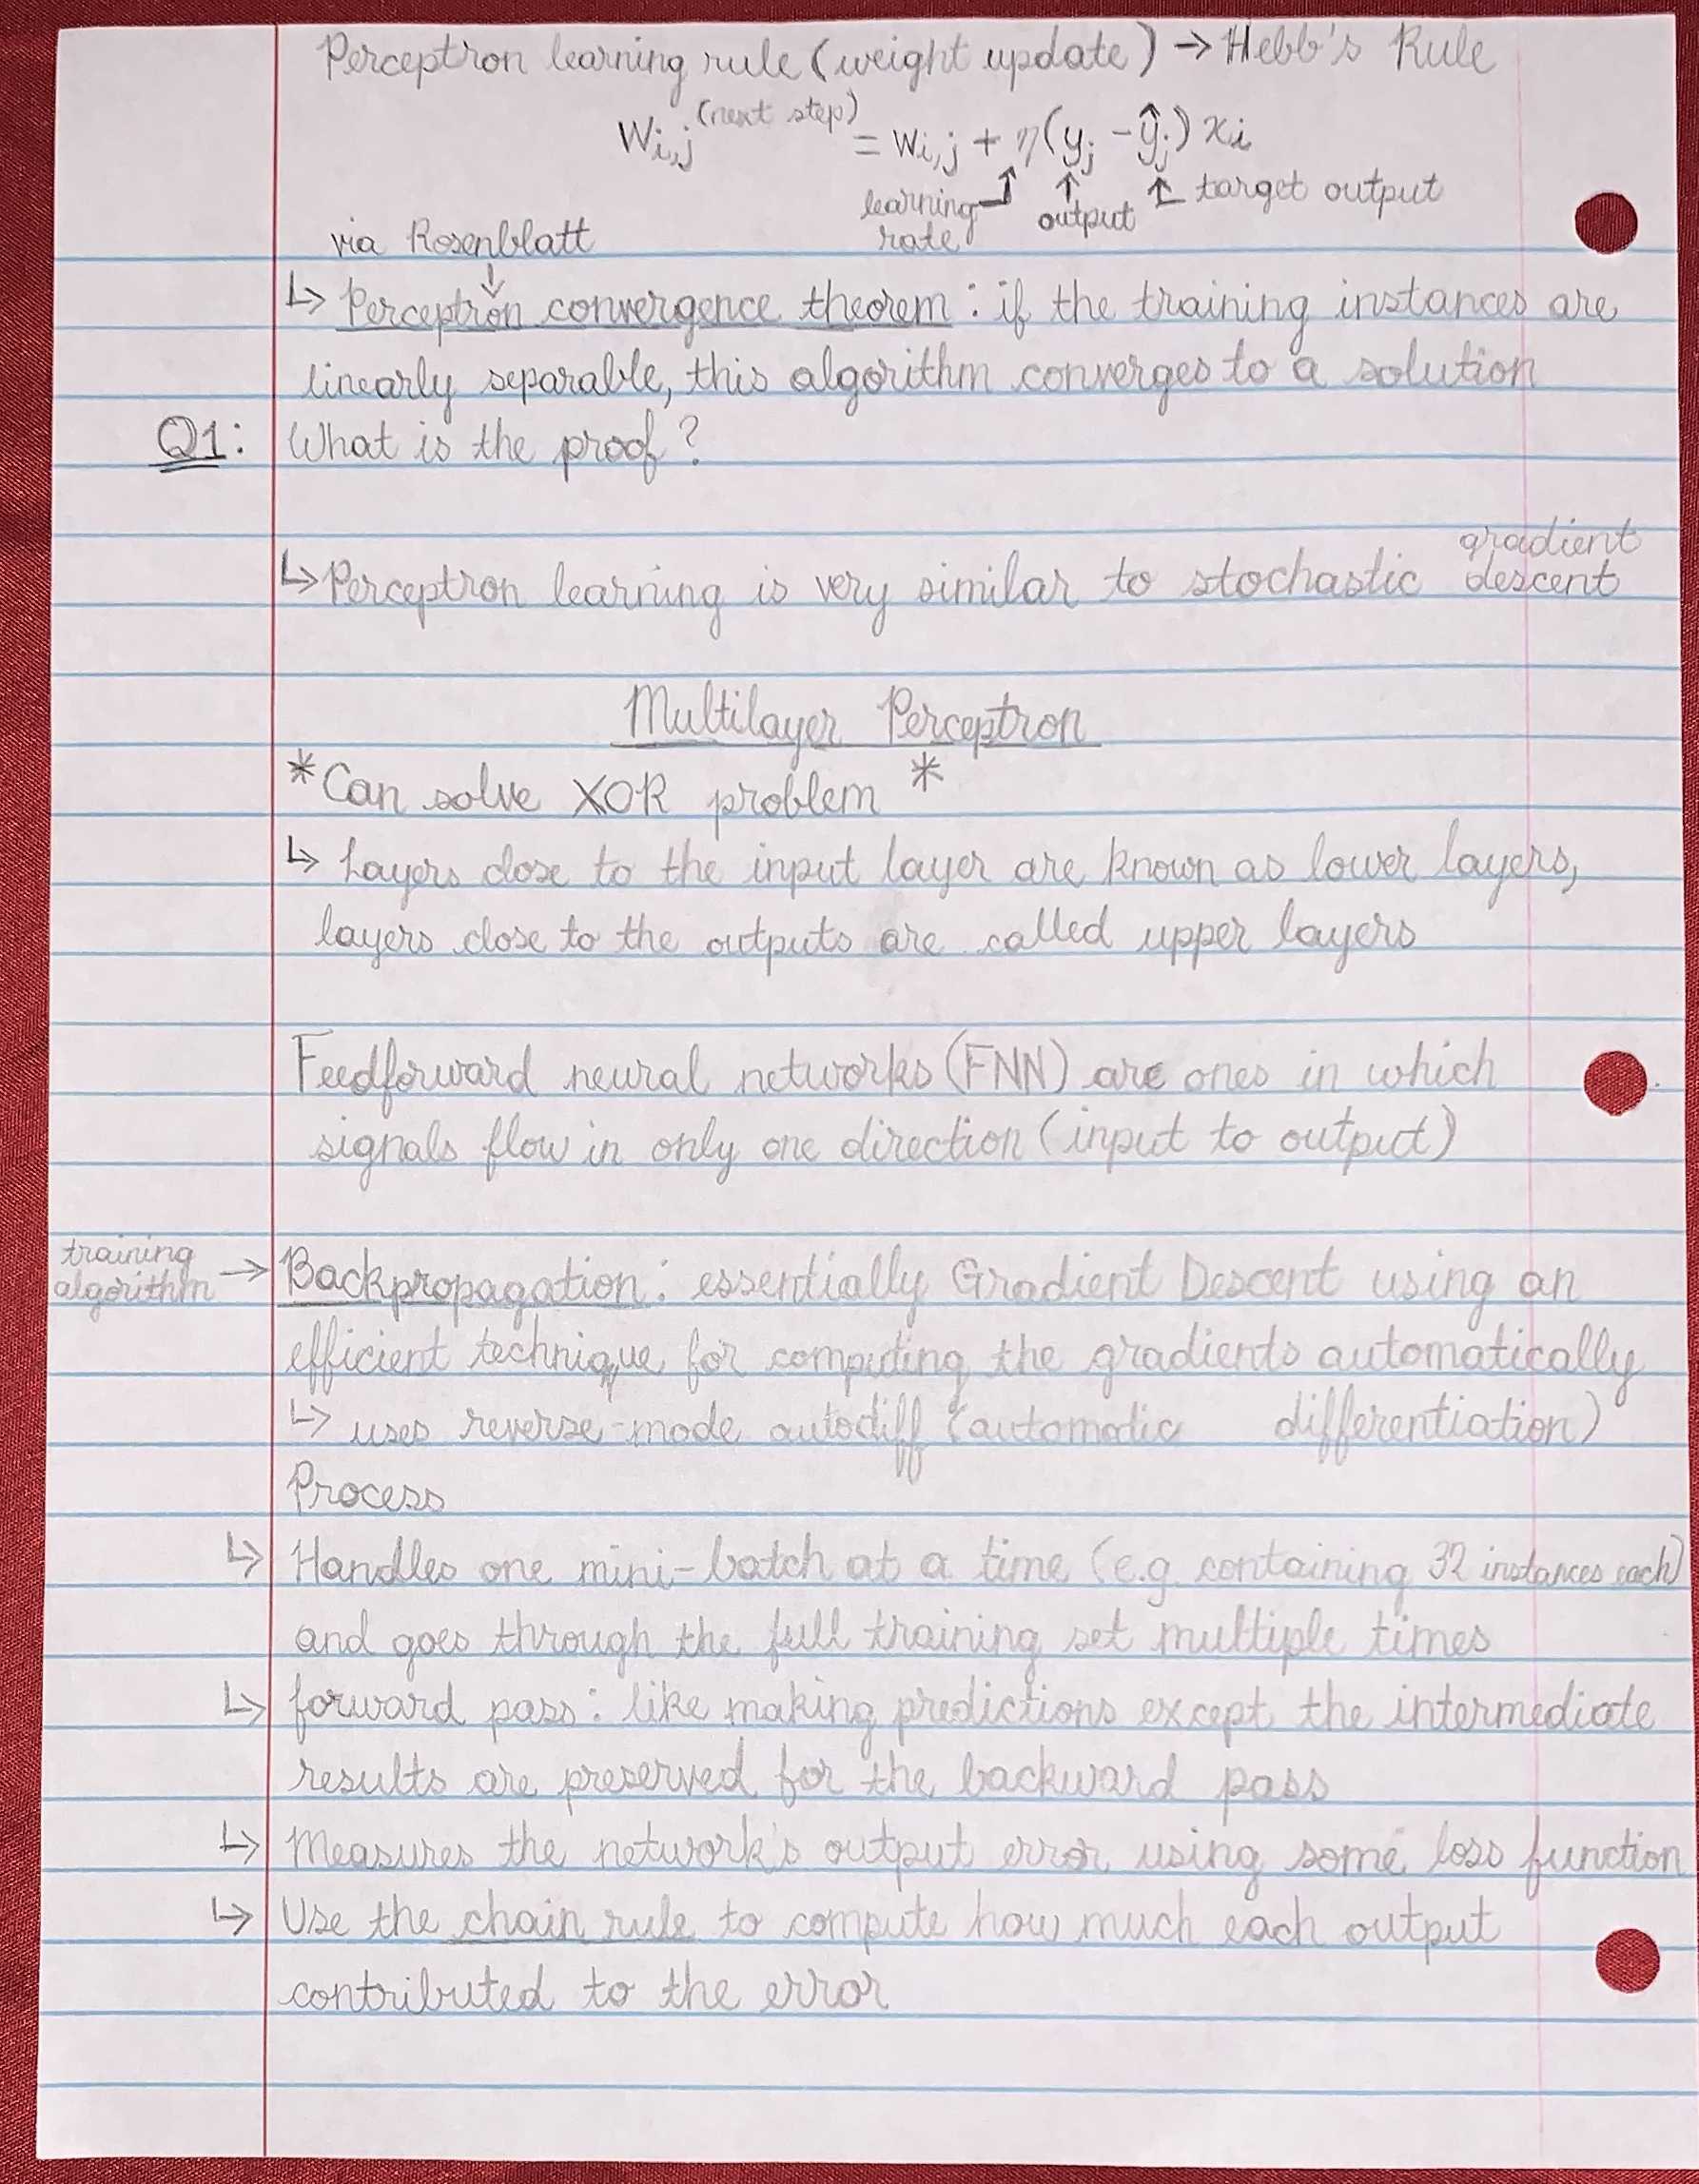 Perceptron learning rule (weight update) → Hebb's Rule
Wi,j (next step) = wi,j + η(yj - ŷj) xi
learning rate
output
target output
via Rosenblatt
↳ Perceptron convergence theorem: if the training instances are
linearly separable, this algorithm converges to a solution
Q1: What is the proof?
↳ Perceptron learning is very similar to stochastic gradient descent
Multilayer Perceptron
*Can solve XOR problem *
↳ Layers close to the input layer are known as lower layers,
layers close to the outputs are called upper layers
Feedforward neural networks (FNN) are ones in which
signals flow in only one direction (input to output)
training algorithm → Backpropagation: essentially Gradient Descent using an
efficient technique for computing the gradients automatically
↳ uses reverse-mode autodiff (automatic differentiation)
Process
↳ Handles one mini-batch at a time (e.g. containing 32 instances each)
and goes through the full training set multiple times
↳ forward pass: like making predictions except the intermediate
results are preserved for the backward pass
↳ Measures the network's output error using some loss function
↳ Use the chain rule to compute how much each output
contributed to the error